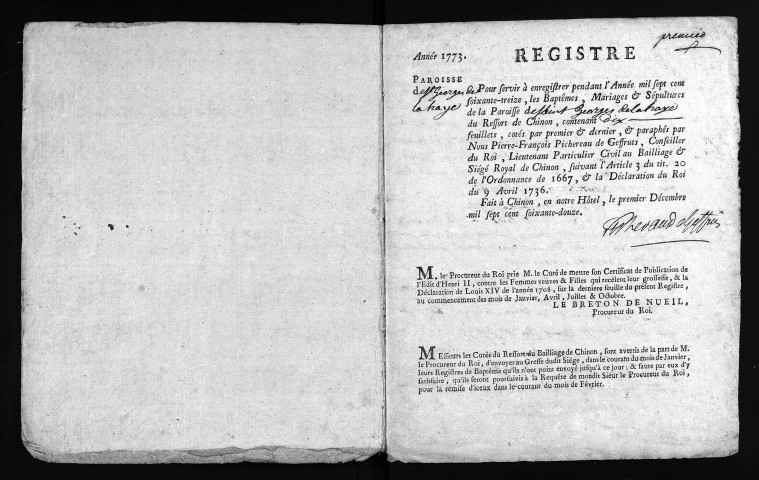 premier
Année 1773. REGISTRE
PAROISSE
de St Georges de
la haye
Pour servir à enregistrer pendant l'Année mil sept cent
soixante-treize, les Baptêmes, Mariages & Sépultures
de la Paroisse de saint Georges de la haye
du Ressort de Chinon, contenant Dix
feuillets, cotés par premier & dernier, & paraphés par
Nous Pierre-François Pichereau de Geffruts, Conseiller
du Roi, Lieutenant Particulier Civil au Bailliage &
Siége Royal de Chinon, suivant l'Article 3 du tit. 20
de l'Ordonnance de 1667, & la Déclaration du Roi
du 9 Avril 1736.
Fait à Chinon, en notre Hôtel, le premier Décembre
mil sept cent soixante-douze.
M. le Procureur du Roi prie M. le Curé de mettre son Certificat de Publication de
l'Edit d'Henri II, contre les Femmes veuves & Filles qui recélent leur grossesse, & la
Déclaration de Louis XIV de l'année 1708, sur la derniere feuille du présent Registre,
au commencement des mois de Janvier, Avril, Juillet & Octobre.
LE BRETON DE NUEIL,
Procureur du Roi.
MEssieurs les Curés du Ressort du Bailliage de Chinon, sont avertis de la part de M.
le Procureur du Roi, d'envoyer au Greffe dudit Siége, dans le courant du mois de Janvier,
leurs Registres de Baptême qu'ils n'ont point envoyé jusqu'à ce jour; & faute par eux d'y
satisfaire, qu'ils seront poursuivis à la Requête de mondit Sieur le Procureur du Roi,
pour la remise d'iceux dans le courant du mois de Février.